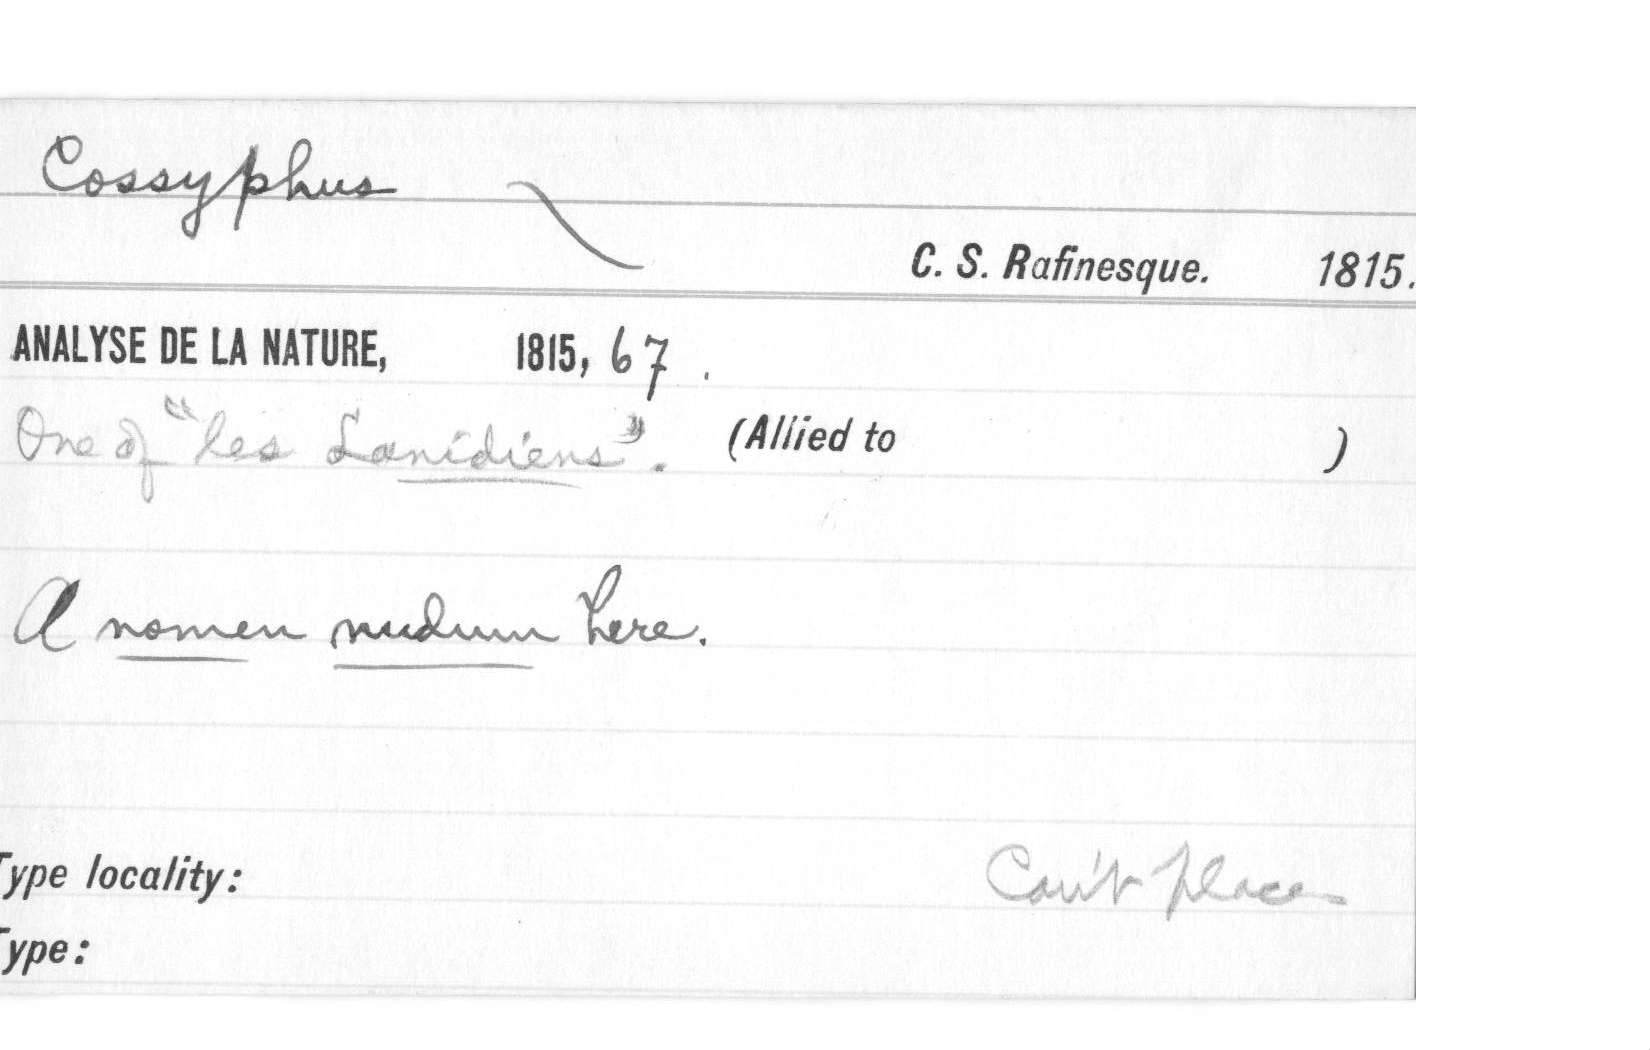 Cossyphus
C. S. Rafinesque. 1815.
ANALYSE DE LA NATURE, 1815, 67.
One of "les Lanidiens". (Allied to )
A nomen nudum here.
Type locality: Can't place
Type: